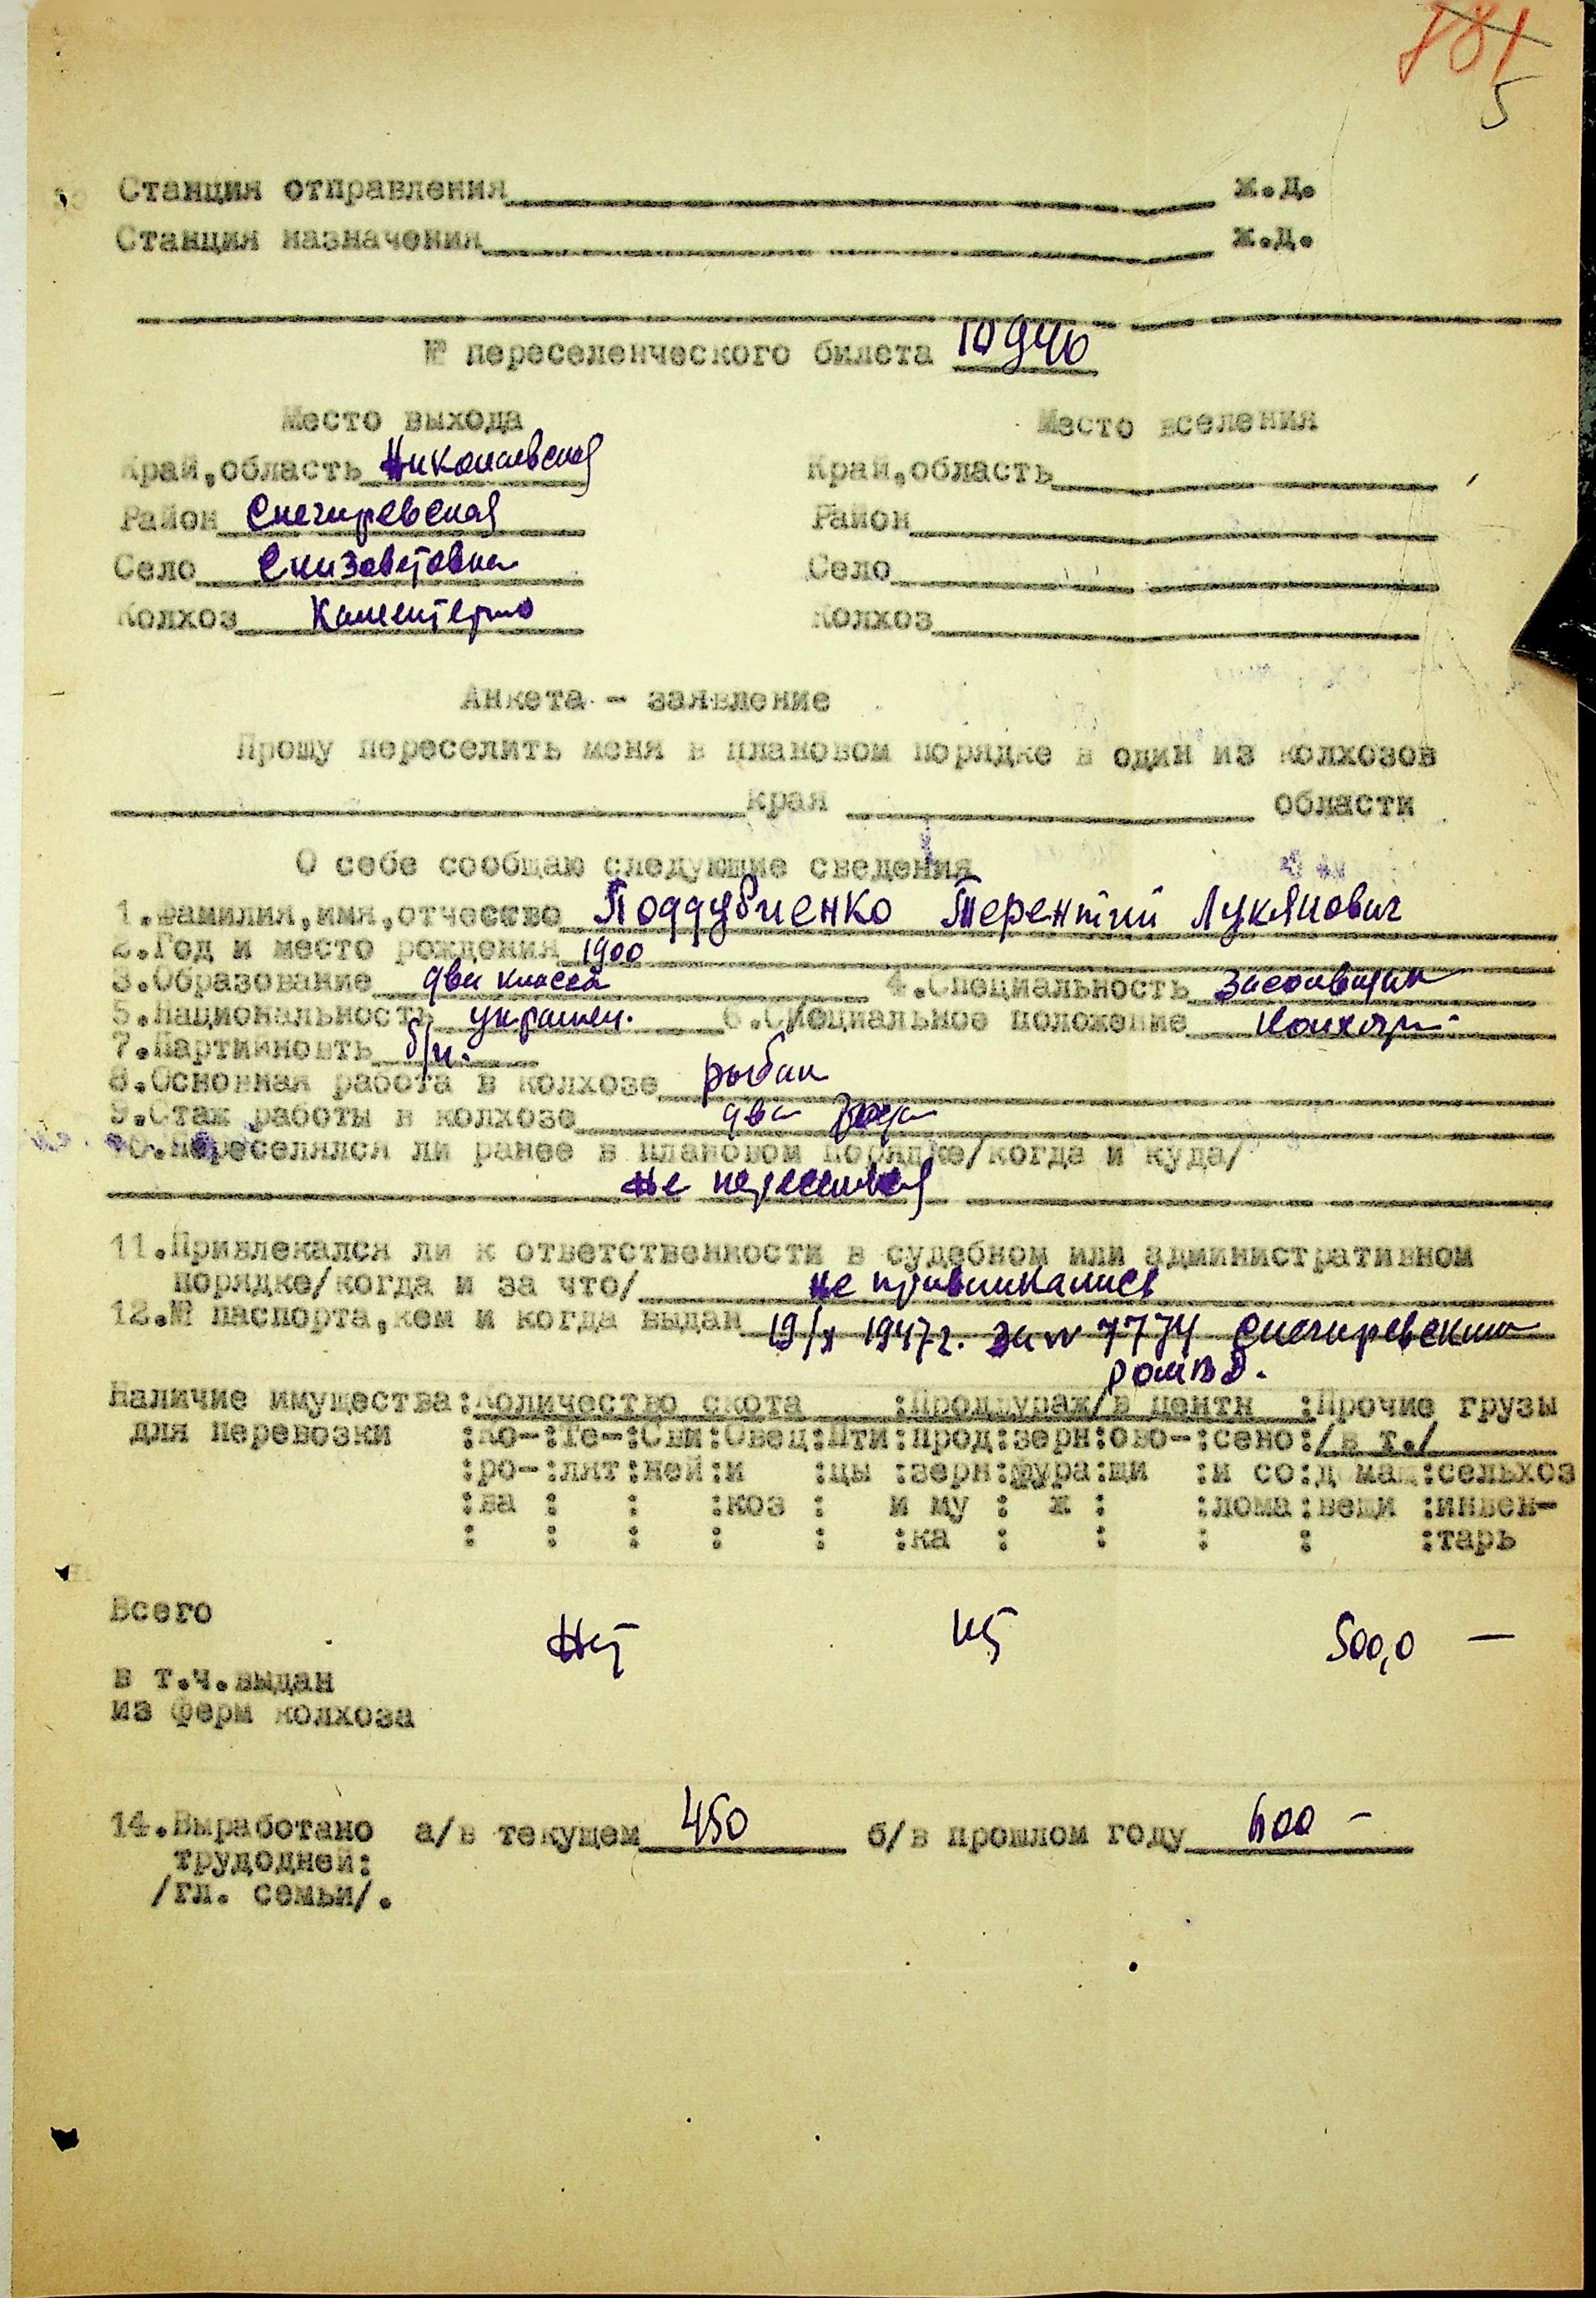 781
5
Станция отправления ж.д.
Станция назначения ж.д.
№ переселенческого билета
Место выхода Место вселения
Край,область Николаевская Край,область
Район Снегиревская Район
Село Елизаветовка Село
Колхоз Коминтерно Колхоз
Анкета - заявление
Прошу переселить меня в плановом порядке в один из колхозов
края области
О себе сообщаю следующие сведения
1.Фамилия,имя,отчество Поддубненко Терентий Лукянович
2.Год и место рождения 1900
3.Образование два класса 4.Специальность
5.Национальность украин. 6.СЙоциальное положение Колхозн.
7.Партийность б/п.
8.Основная работа в колхозе рыбак
9.Стаж работы в колхозе два года
10.Переселялся ли ранее в плановом порядке/когда и куда/
не переселялся
11.Привлекался ли к ответственности в судебном или административном
порядке/когда и за что/ не привликались
12.№ паспорта,кем и когда выдан 19/X 1947г. за № 7774 Снегиревским
РОМВД.
Наличие имущества:Количество скота :Продфураж/в центн :Прочие грузы
для перевозки :ко-:Те-:Сви:Овец:Пти:прод:зерн:ово-:сено:/в т./
:ро-:лят:ней:и :цы :зерн:фура:щи :и со:домаш:сельхоз
:ва : : :коз : и му : ж : :лома:вещи :инвен-
: : : : : :ка : : : : :тарь
Всего Нет нет 500,0 —
в т.ч.выдан
из ферм колхоза
14.Выработано а/в текущем 450 б/в прошлом году 600 —
трудодней:
/гл. семьи/.